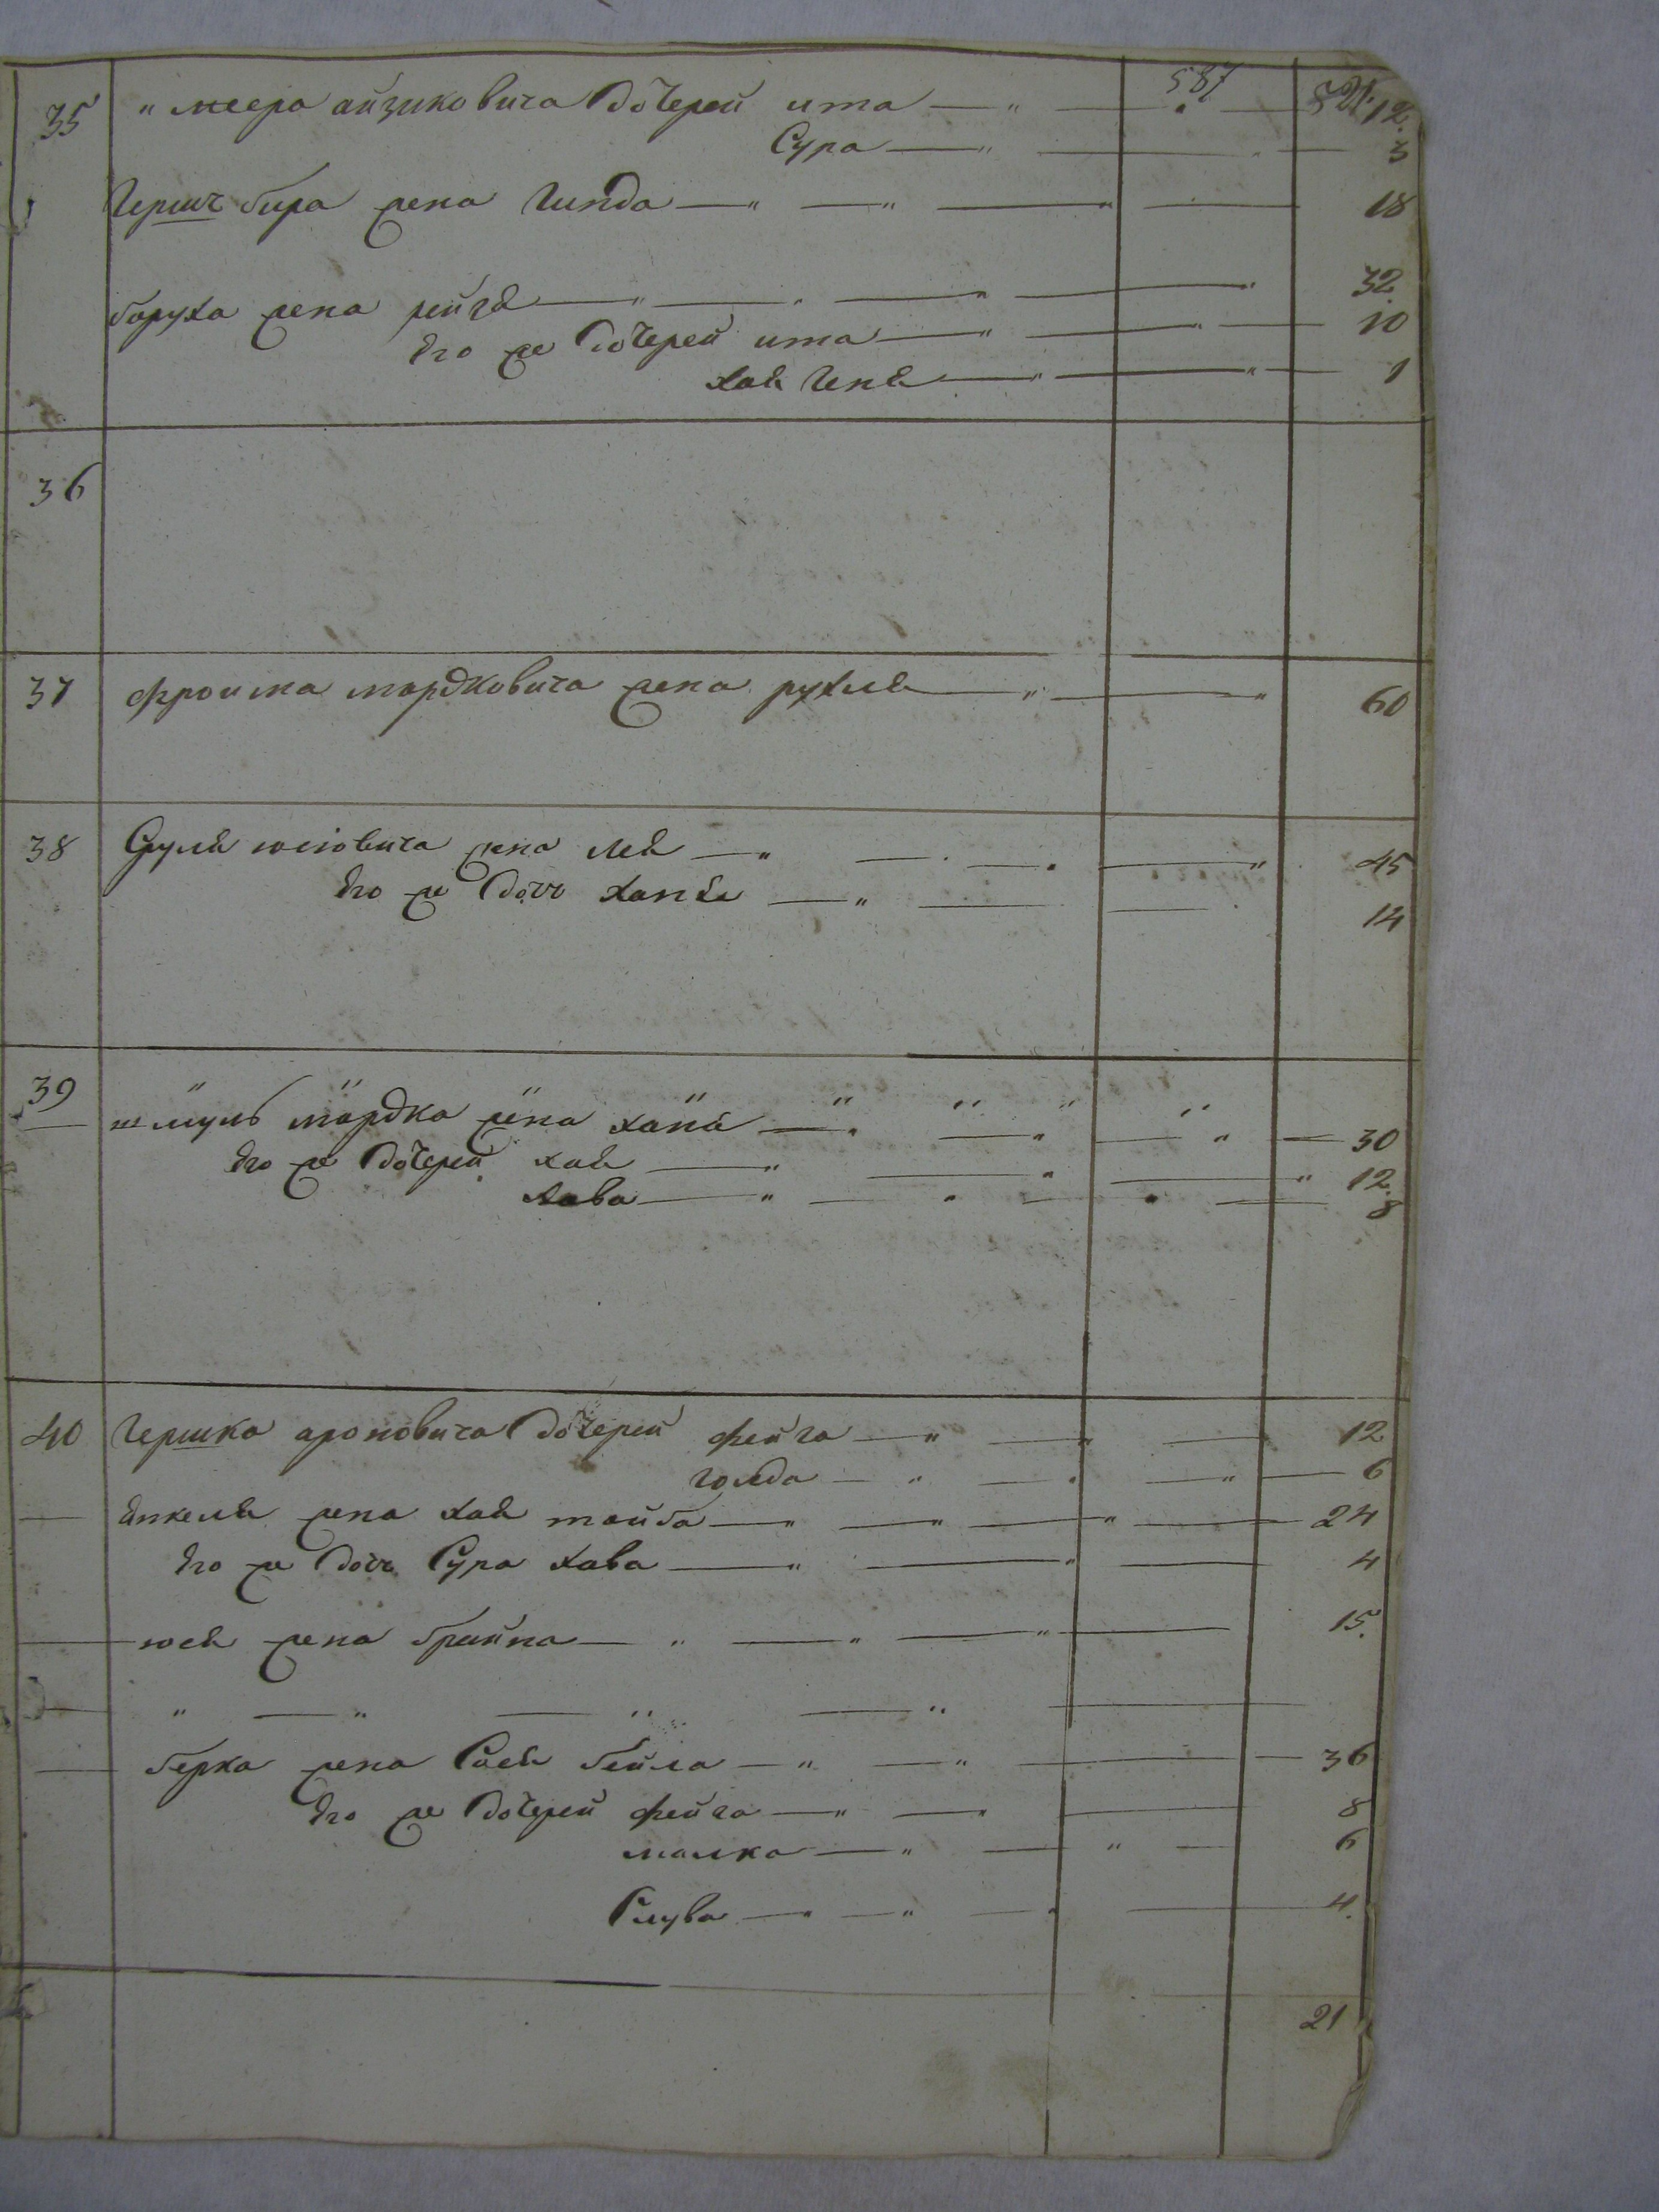 587
35 меера айзиковича дочерей ита 12
Сура 3
Герш бира жена гинда 18
баруха жена рейзя 32
его же дочерей ита 10
хая геня 1
36
37 фроима мордковича жена рухля 60
38 Сруля юсіовича жена лея 45
его же дочь ханя 14
39 шмуль мордка жена хана 30
его же дочерей хая 12
хава 8
40 Гершка ароновича дочерей фейга 12
голда 6
янкеля жена хая тайба 24
его же дочь Сура хава 4
юся жена брайна 15
берка жена бейла 36
его же дочерей фейга 8
малка 6
Слува 4
21